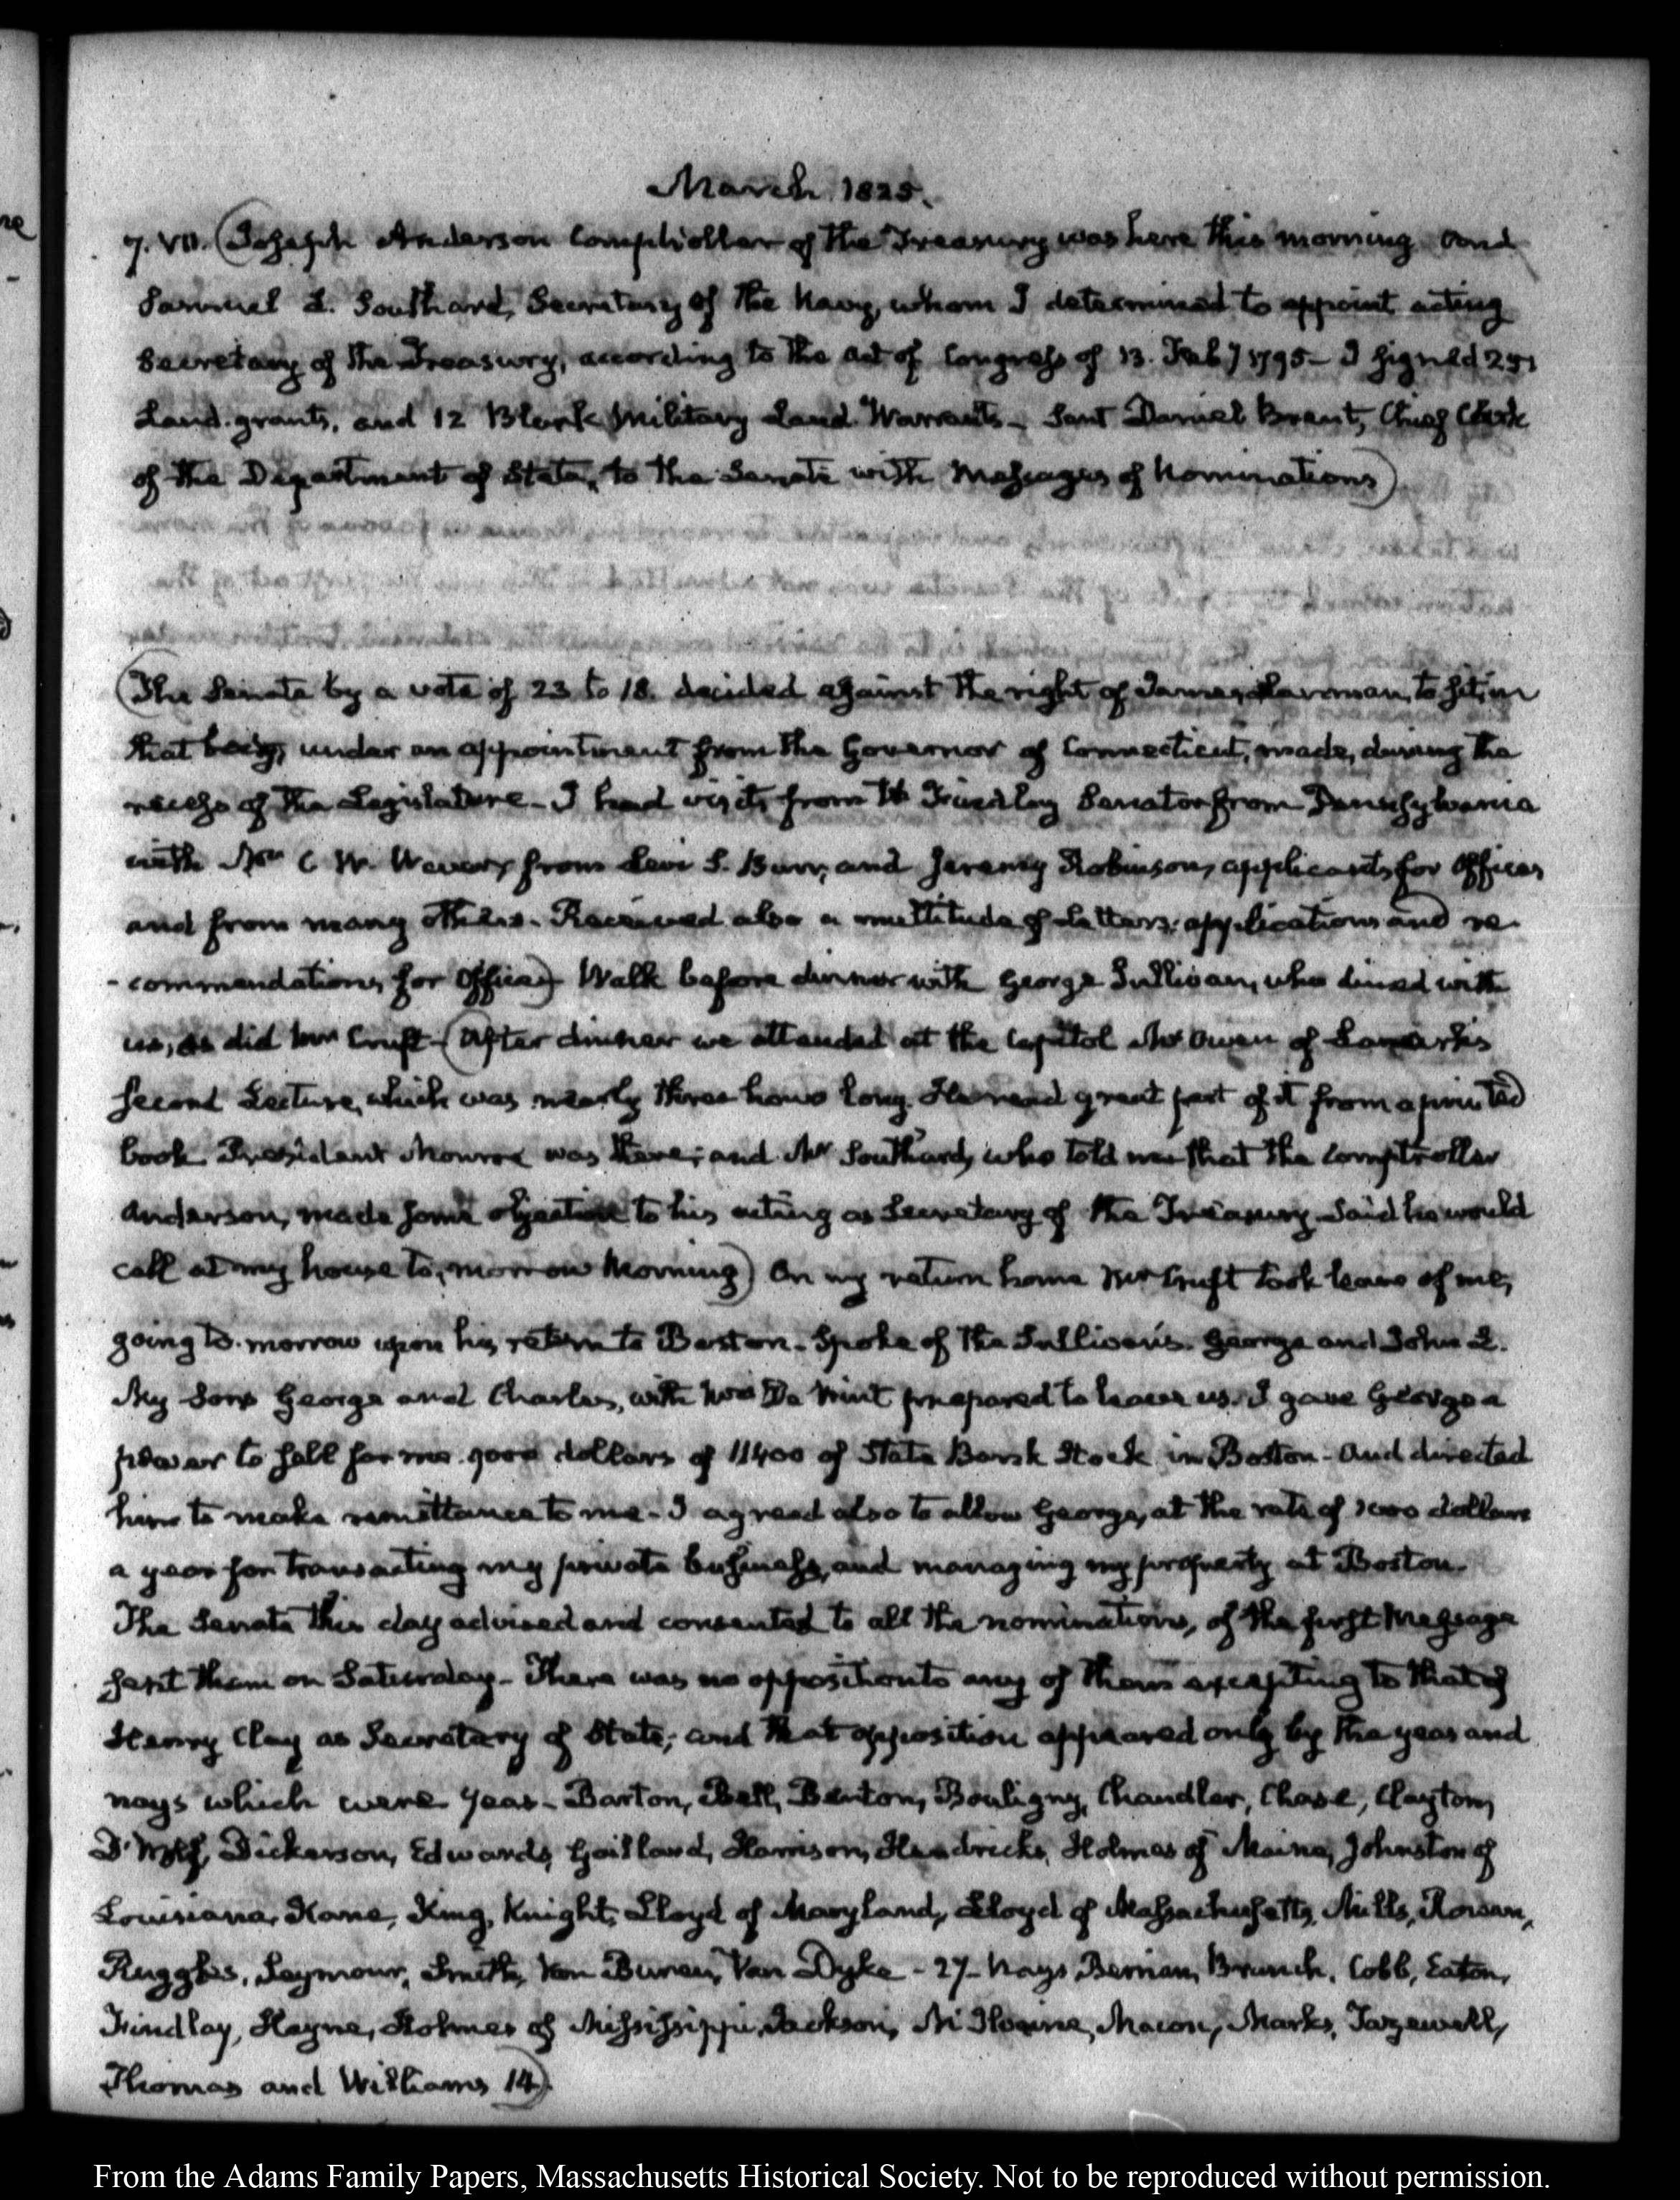 March 1825.
7. VII. (Joseph Anderson Comptroller of the Treasury was here this morning and
Samuel L. Southard, Secretary of the Navy, whom I determined to appoint acting
Secretary of the Treasury, according to the Act of Congress of 13. Feby 1795 - I signed 251
Land grants, and 12 Blank Military Land Warrants - Sent Daniel Brent, Chief Clerk
of the Department of State, to the Senate with Messages of Nominations)
(The Senate by a vote of 23 to 18. decided against the right of James Lanman, to sit in
that body, under an appointment from the Governor of Connecticut, made, during the
recess of the Legislature - I had visits from Mr Findlay Senator from Pennsylvania
with Mr C W. Wever, from Levi S. Burr, and Jeremy Robinson, applicants for Offices
and from many others - Received also a multitude of Letters; applications and re-
-commendations for Office) Walk before dinner with George Sullivan, who dined with
us, as did Mr Cruft - (After dinner we attended at the Capitol Mr Owen of Lanark's
second Lecture, which was nearly three hours long. He read great part of it from a printed)
book. President Monroe was there; and Mr Southard, who told me that the Comptroller
Anderson, made some objection to his acting as Secretary of the Treasury. Said he would
call at my house to-morrow Morning) On my return home Mr Cruft took leave of me,
going to-morrow upon his return to Boston - Spoke of the Sullivan's. George and John L.
My Sons George and Charles, with Mr De Wint prepared to leave us. I gave George a
power to sell for me 9000 dollars of 11400 of State Bank Stock in Boston - and directed
him to make remittance to me - I agreed also to allow George, at the rate of 1000 dollars
a year for transacting my private business, and managing my property at Boston.
The Senate this day advised and consented to all the nominations, of the first Message
sent them on Saturday - There was no opposition to any of them excepting to that of
Henry Clay as Secretary of State; and that opposition appeared only by the yeas and
nays which were Yeas - Barton, Bell, Benton, Bouligny, Chandler, Chase, Clayton,
D'Wolf, Dickerson, Edwards, Gaillard, Harrison, Hendricks, Holmes of Maine, Johnston of
Louisiana, Kane, King, Knight, Lloyd of Maryland, Lloyd of Massachusetts, Mills, Rowan,
Ruggles, Seymour, Smith, Van Buren, Van Dyke - 27 - Nays Berrian, Branch, Cobb, Eaton,
Findlay, Hayne, Holmes of Mississippi, Jackson, McIlvaine, Macon, Marks, Tazewell,
Thomas and Williams 14)
From the Adams Family Papers, Massachusetts Historical Society. Not to be reproduced without permission.